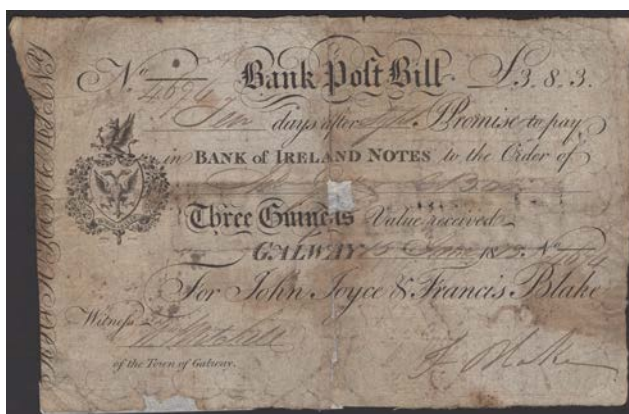 No Bank Post Bill £3.8.3.
4694
Ten days after Sight I Promise to pay
in BANK of IRELAND NOTES to the Order of
Three Guineas Value received
GALWAY 15 18 No 4694
For John Joyce & Francis Blake
Witness Mitchell
of the Town of Galway.
F Blake